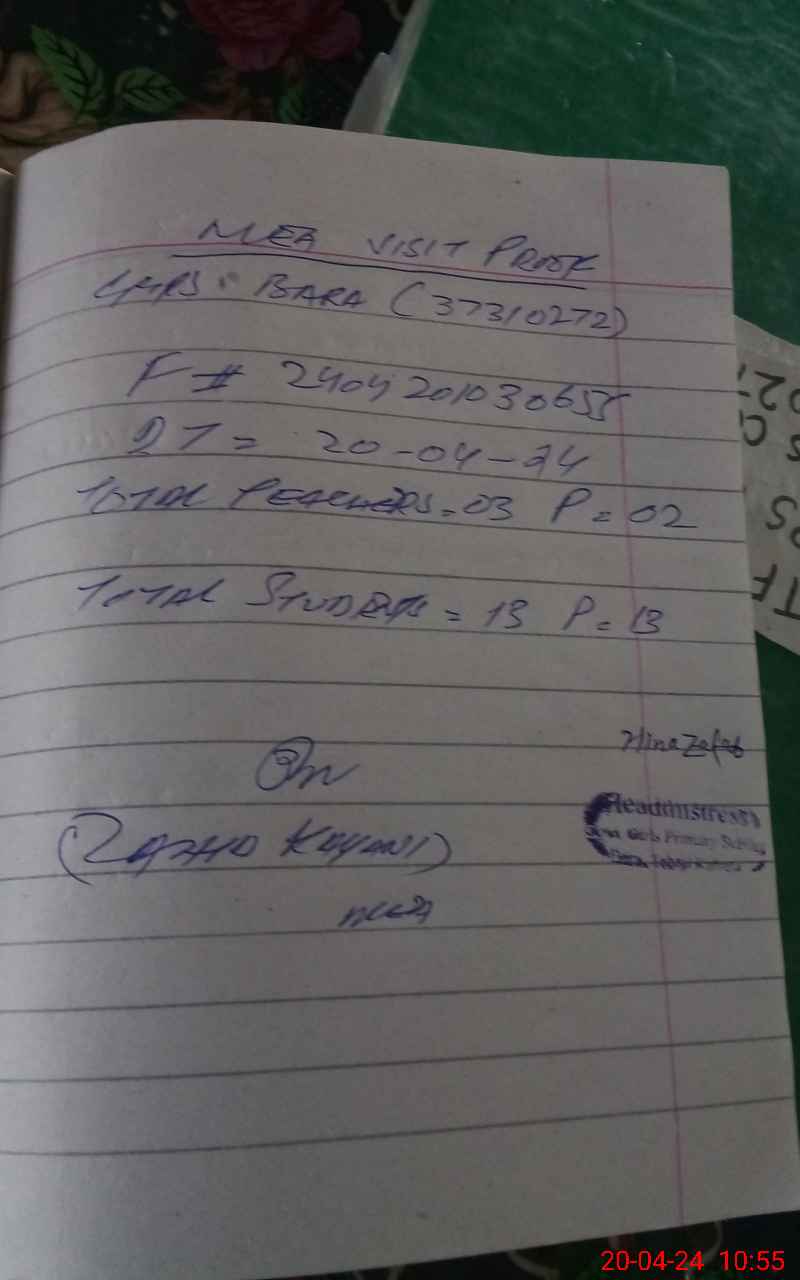 MEA VISIT PROOF
GGPS. BARA (37310272)
F # 2404201030655
DT = 20-04-24
TOTAL TEACHERS = 03 P = 02
TOTAL STUDENTS = 13 P = 13
Hina Zafar
Headmistress
Girls Primary School
KAYANI)
MEA
20-04-24 10:55